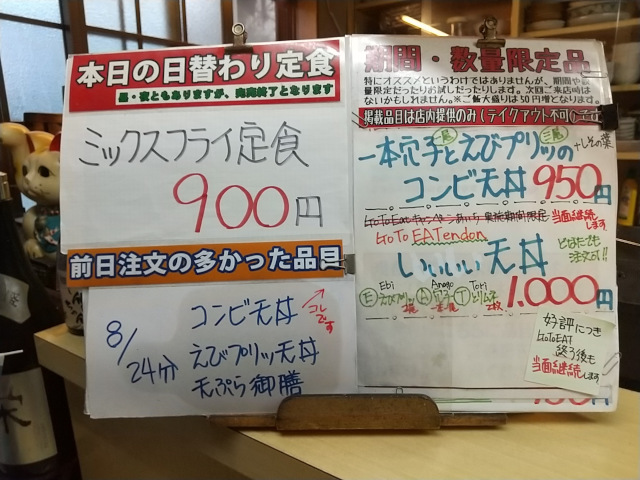 本日の日替わり定食
昼・夜ともありますが、完売終了となります
ミックスフライ定食
900円
前日注文の多かった品目
8/24分
コンビ天丼
コレです
えびプリッ天丼
天ぷら御膳
期間・数量限定品
特にオススメというわけではありませんが、期間や数
量限定だったりお試しだったりします。次回ご来店時は
ないかもしれません。※ご飯大盛りは50円増となります。
掲載品目は店内提供のみ(テイクアウト不可
一本穴子とえびプリッの
+しその葉
コンビ天丼 950円
GoToEatキャンペーンあいち 実施期間限定 当面継続します
GoTo EATendon
いいいい天丼
どなたでも
注文可!!
Ebi Anago Tori
E えびプリッ 2尾 A 穴子 一本 T とりムネ 2枚
1,000円
好評につき
GoToEAT
終了後も
当面継続します